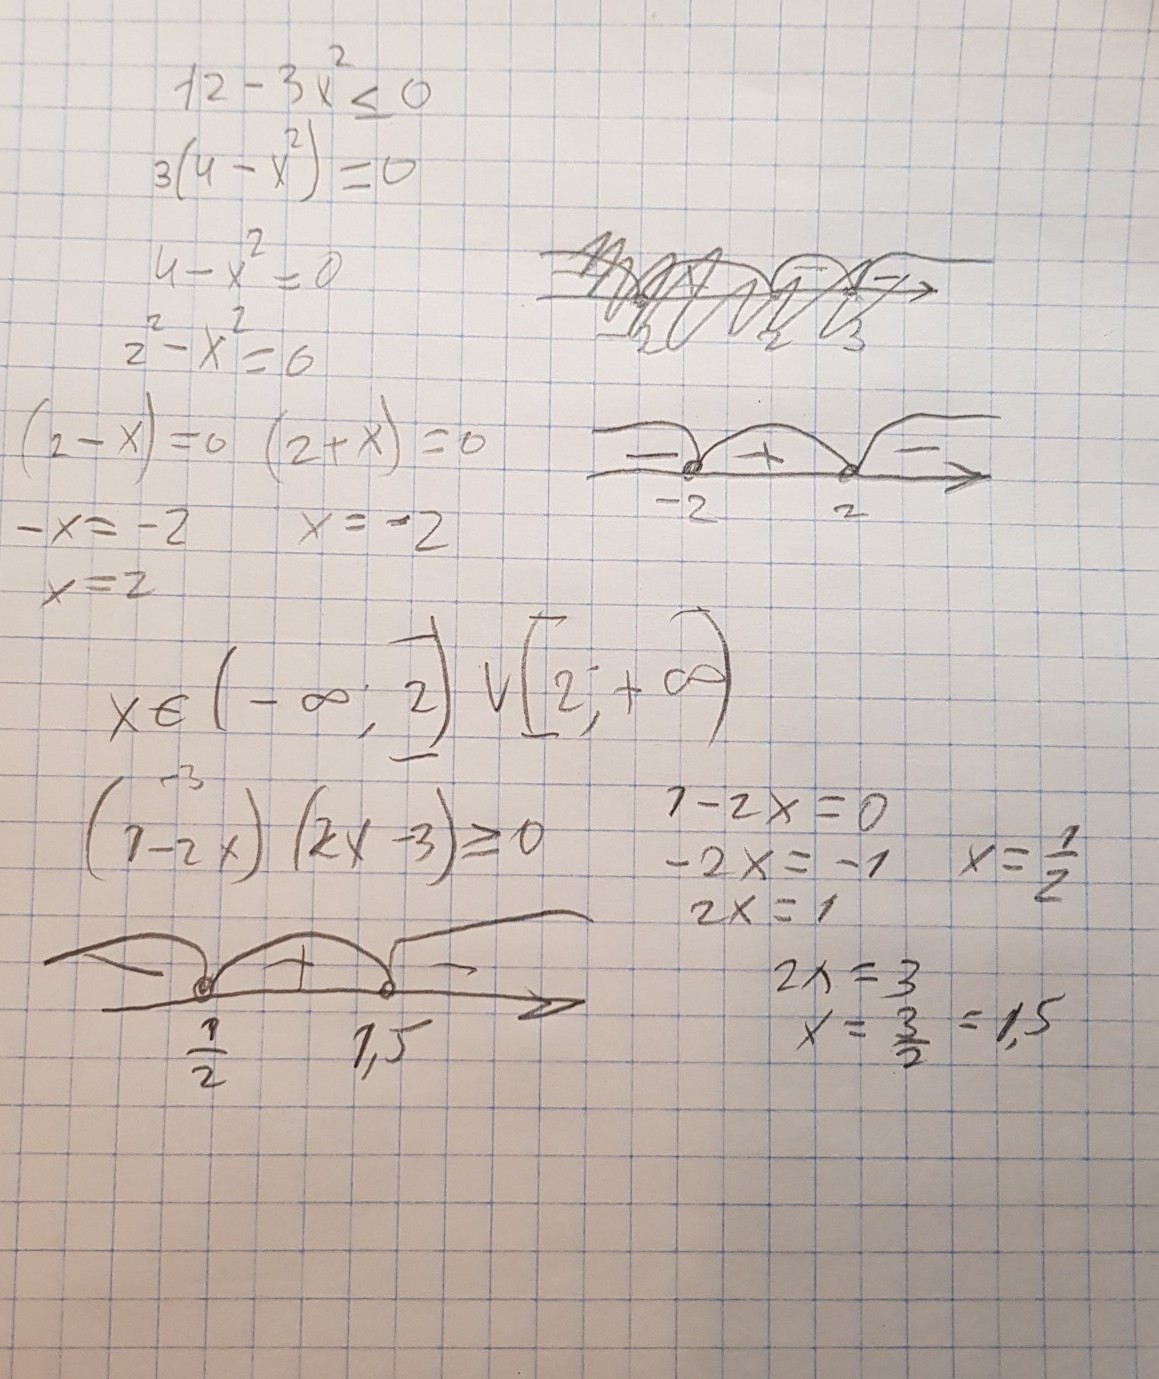 12 - 3x² ≤ 0
3(4 - x²) = 0
4 - x² = 0
2² - x² = 0
(2 - x) = 0 (2 + x) = 0
-x = -2 x = -2
x = 2
-2 2 3
- + -
-2 2
x ∈ (-∞; 2] ∨ [2; +∞)
-3
(1 - 2x) (2x - 3) ≥ 0
- + -
1/2 1,5
1 - 2x = 0
-2x = -1 x = 1/2
2x = 1
2x = 3
x = 3/2 = 1,5